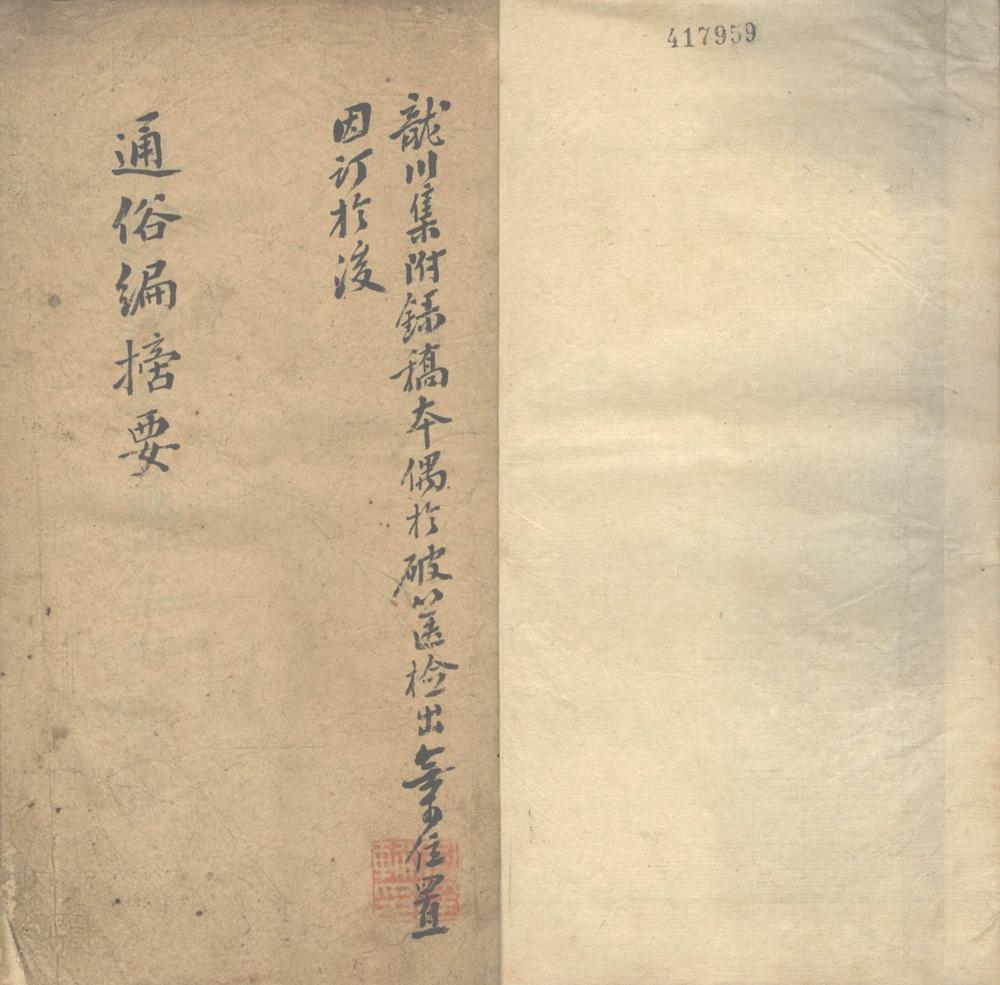 417959
龍川集附錄稿本偶於破篋檢出無可位置
因訂於後
通俗編摘要